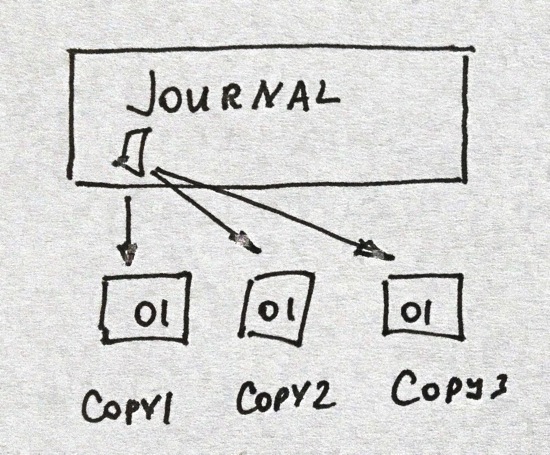 JOURNAL
01 01 01
COPY1 COPY2 COPY3